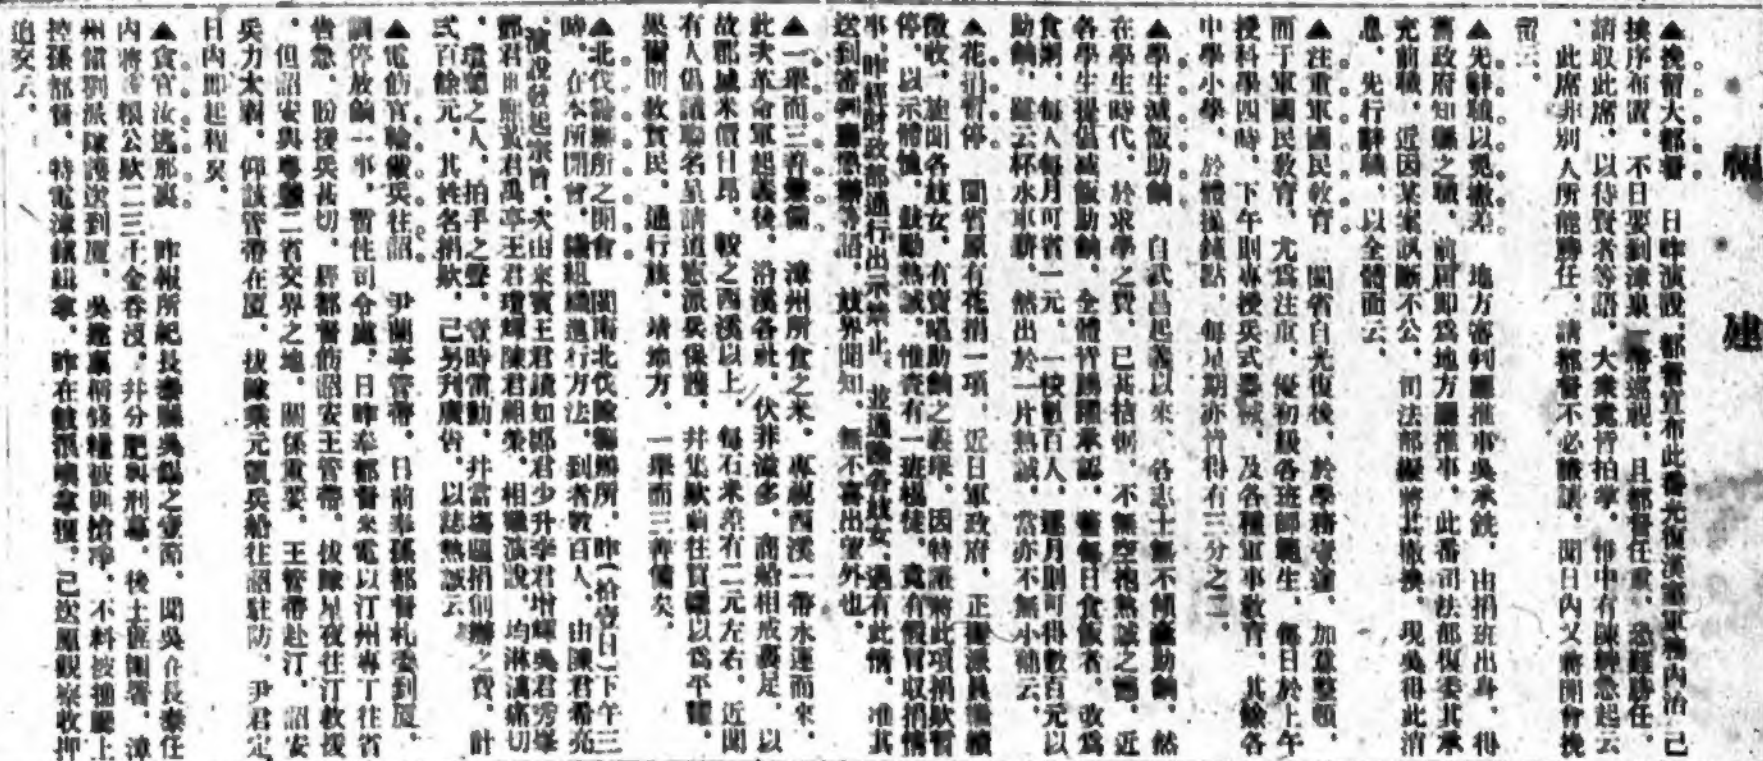 福建
▲挽留大都督　日昨演說、都督宣布此番光復漢獨軍務內治、已
挨序布置、不日要到漳泉一帶巡視、且都督任重、恐難勝任、
請取此席、以待賢者等語、大衆竟皆拍掌、惟中有陳　忽起云
、此席非別人所能勝任、請都督不必謙讓、聞日內又將開會挽
留云、
▲先辭職以免撤差　地方審判廳推事吳承銑、由捐班出身、得
舊政府知縣之職、前因即爲地方廳推事、此番司法部復委其承
充前職、近因某案誤斷不公、司法部擬將其撤換、現吳得此消
息、先行辭職、以全體面云、
▲注重軍國民敎育　閩省自光復後、於學務　　、加意整頓、
而于軍國民敎育、尤爲注重、優初級各班師範生、每日於上午
授科學四時、下午則專授兵式器械、及各種軍事敎育、其餘各
中學小學、於體操鐘點、每星期亦皆得有三分之二、
▲學生減飯助餉　自武昌起義以來、各志士無不傾　助餉、然
在學生時代、於求學之費、已甚拮据、不無空抱熱誠之　、近
各學生提倡減飯助餉、全體皆踴躍承認、　每日食飯者、改爲
食粥、每人每月可省一元、一校數百人、　月則可得數百元以
助餉、雖云杯水車薪、然出於一片熱誠、當亦不無小補云、
▲花捐暫停　閩省原有花捐一項、近日軍政府、正擬派員繼續
徵收、旋聞各妓女、有賣唱助餉之義舉、因特　將此項捐欵暫
停、以示體恤、鼓勵熱誠、惟查有一班棍徒、竟有假冒收捐情
事、昨經財政部通行出示禁止、並通　各妓女、遇有此情、准其
送到審判廳懲辦等語、妓界聞知、無不喜出望外也、
▲一舉而三善　備　漳州所食之米、專靠西溪一帶水運而來、
此次革命軍起義後、沿溪各社、伏莽滋多、商船相戒裹足、以
故郡城米價日昂、較之西溪以上、每石米差有二元左右、近聞
有人倡議聯名呈請道憲派兵保護、幷集欵前往買糴以爲平糶、
果爾則救貧民、通行旅、靖地方、一舉而三善備矣、
▲北伐籌辦所之開會　閩南北伐隊籌辦所、昨（拾壹日）下午三
時、在本所開會、議組織進行方法、到者數百人、由陳君希亮
、演說發起宗旨、次由來賓王君讀如鄭君少升李君增輝吳君秀峯
鄧君　熙黃君禹亭王君瓊輝陳君　榮、相繼演說、均淋漓痛切
、　聽之人、拍手之聲、　時雷動、幷當塲題捐創辦之費、計
弍百餘元、其姓名捐欵、已另刋廣告、以誌熱誠云、
▲電飭官輪載兵往詔　尹蘭亭管帶、日前奉孫都督札委到厦、
調停放餉一事、暫住司令處、日昨奉都督來電以汀州專丁往省
告急、盼援兵甚切、經都督飭詔安王管帶、拔隊星夜往汀救援
、但詔安與粵　二省交界之地、關係重要、王管帶赴汀、詔安
兵力太薄、仰該管帶在厦、拔隊乘元凱兵船往詔駐防、尹君定
日內即起程矣、
▲貪官汝逃那裏　昨報所紀長泰縣吳錫之壹節、聞吳在長泰任
內將　粮公欵二三千金吞沒、幷分肥與刑幕、後土匪圍署、漳
州鎮劉派隊護送到厦、吳　稟稱錢糧被匪搶凈、不料被　　上
控孫都督、特電漳鎮緝拿、昨在鼓浪嶼拿獲、已送廈觀察收押
追交云、